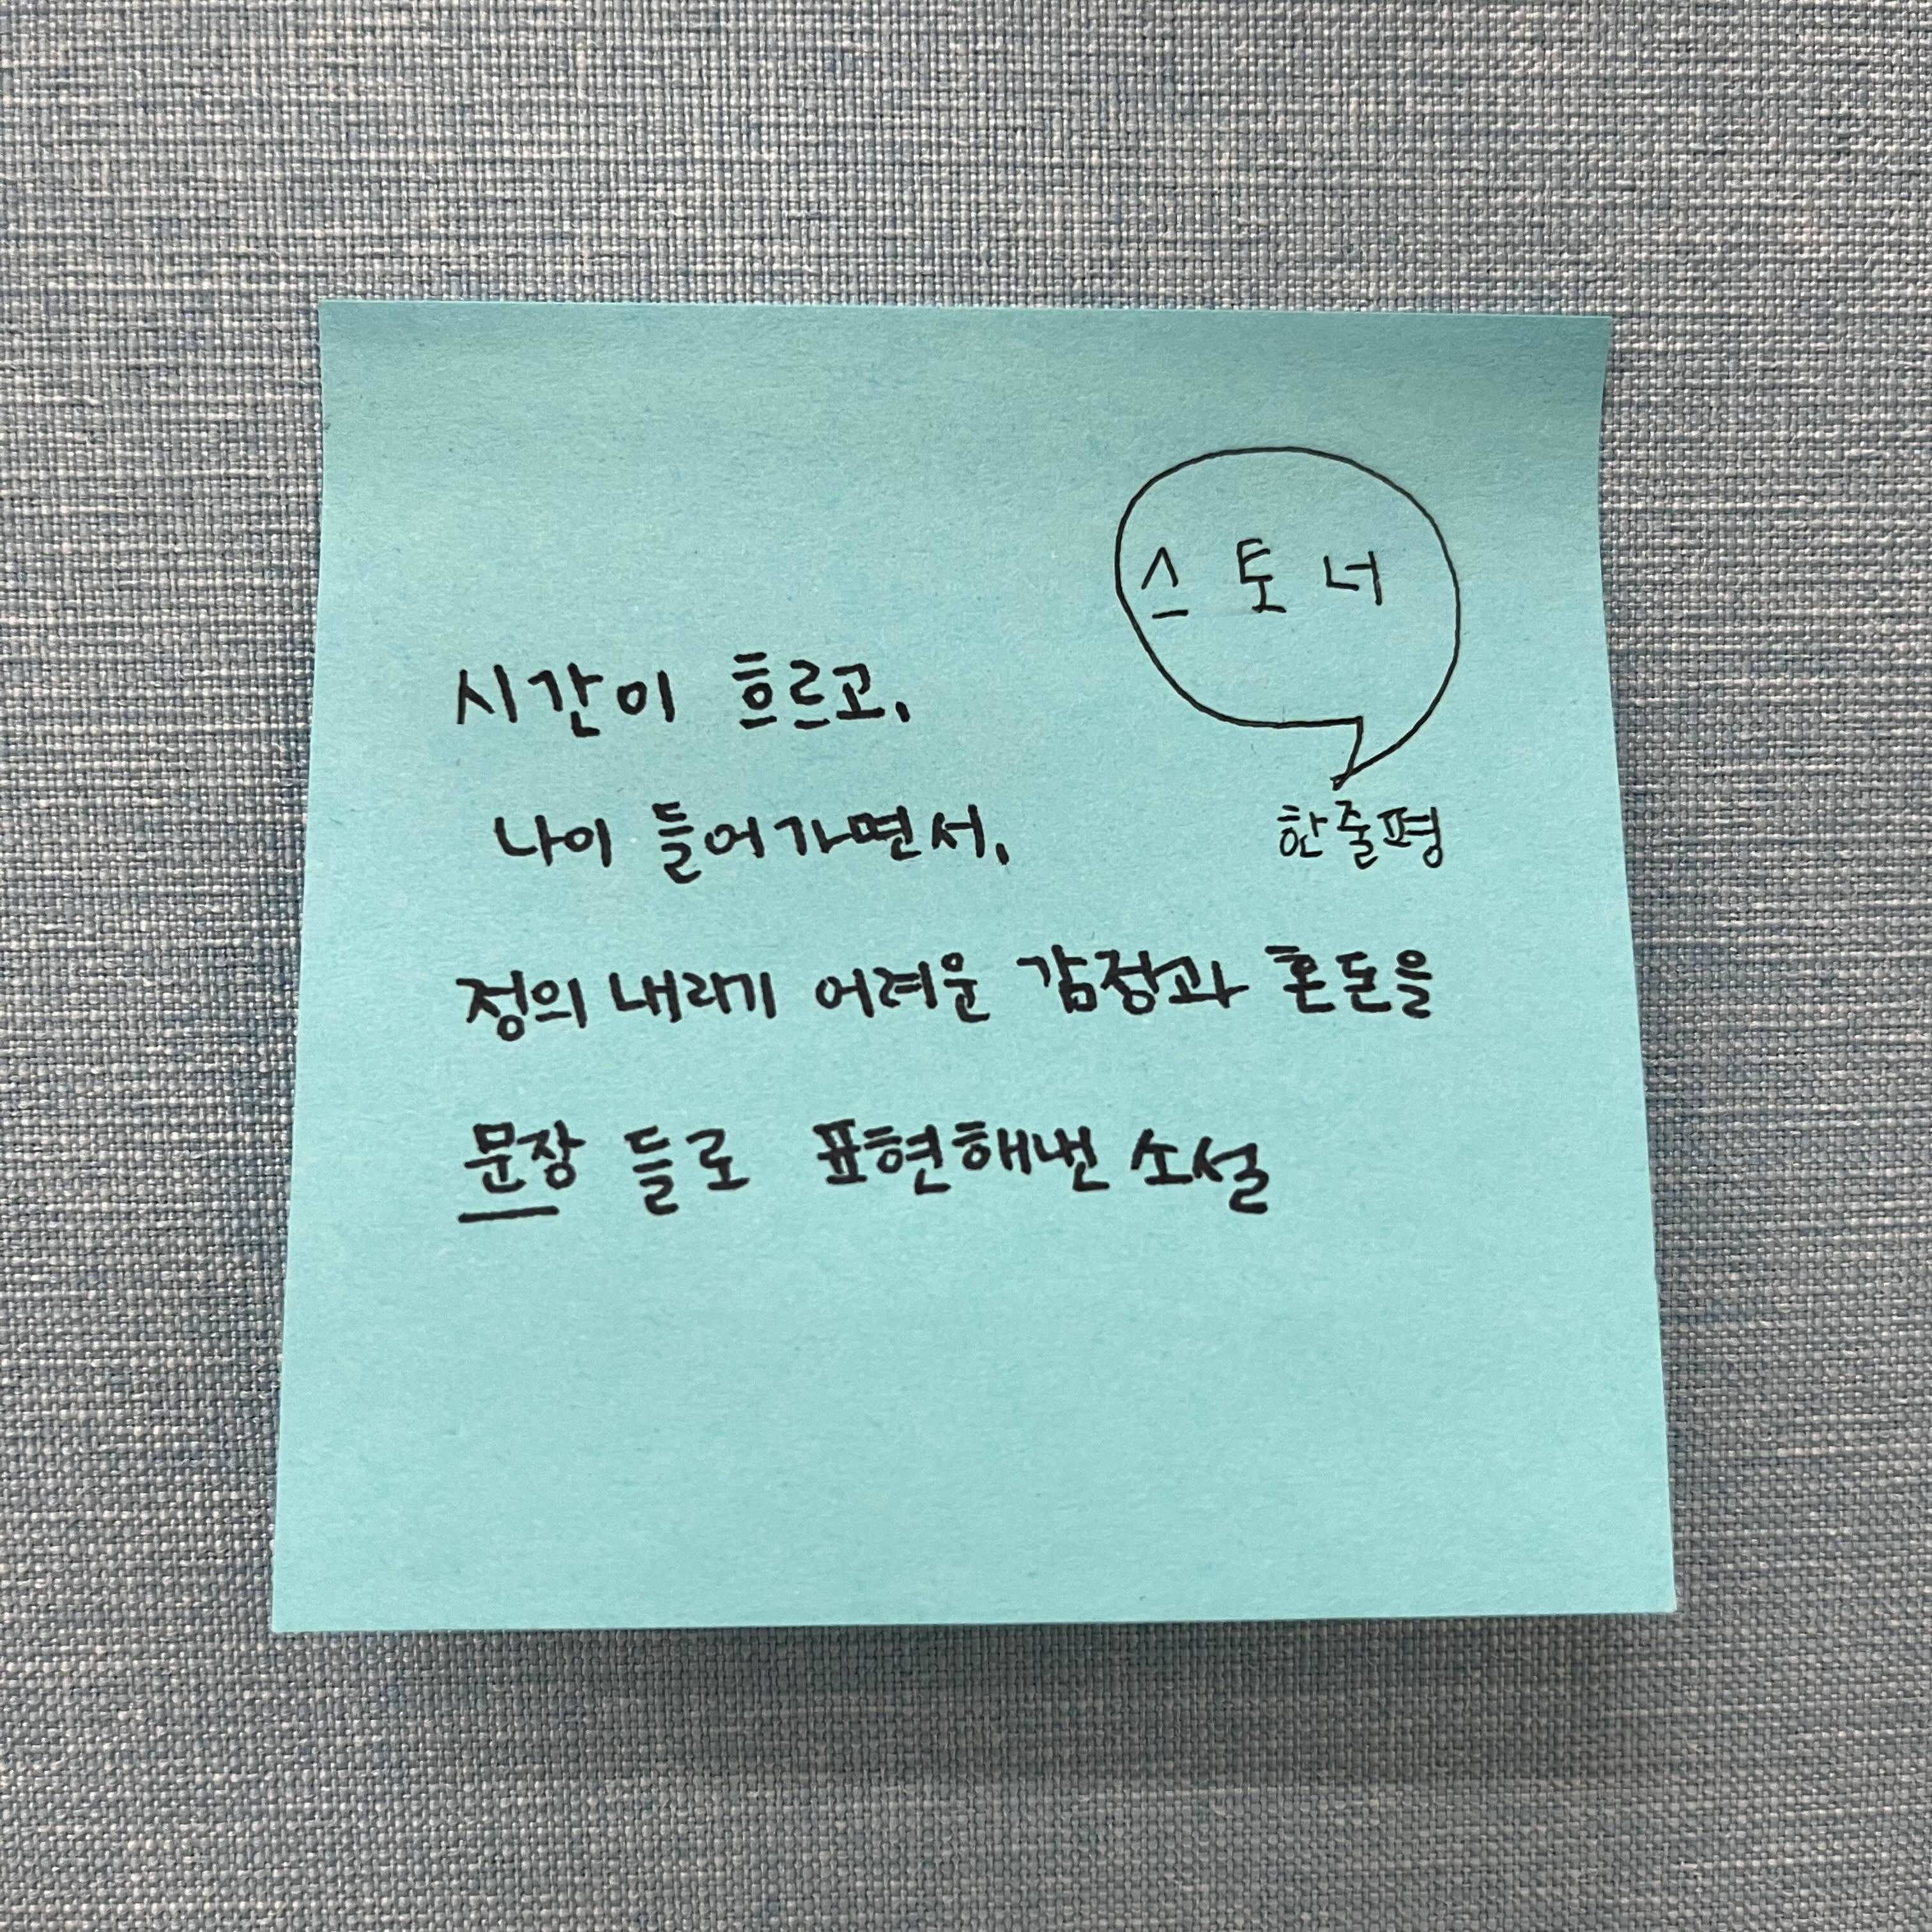 스토너
한줄평
시간이 흐르고,
나이 들어가면서,
정의 내리기 어려운 감정과 혼돈을
문장 들로 표현해낸 소설